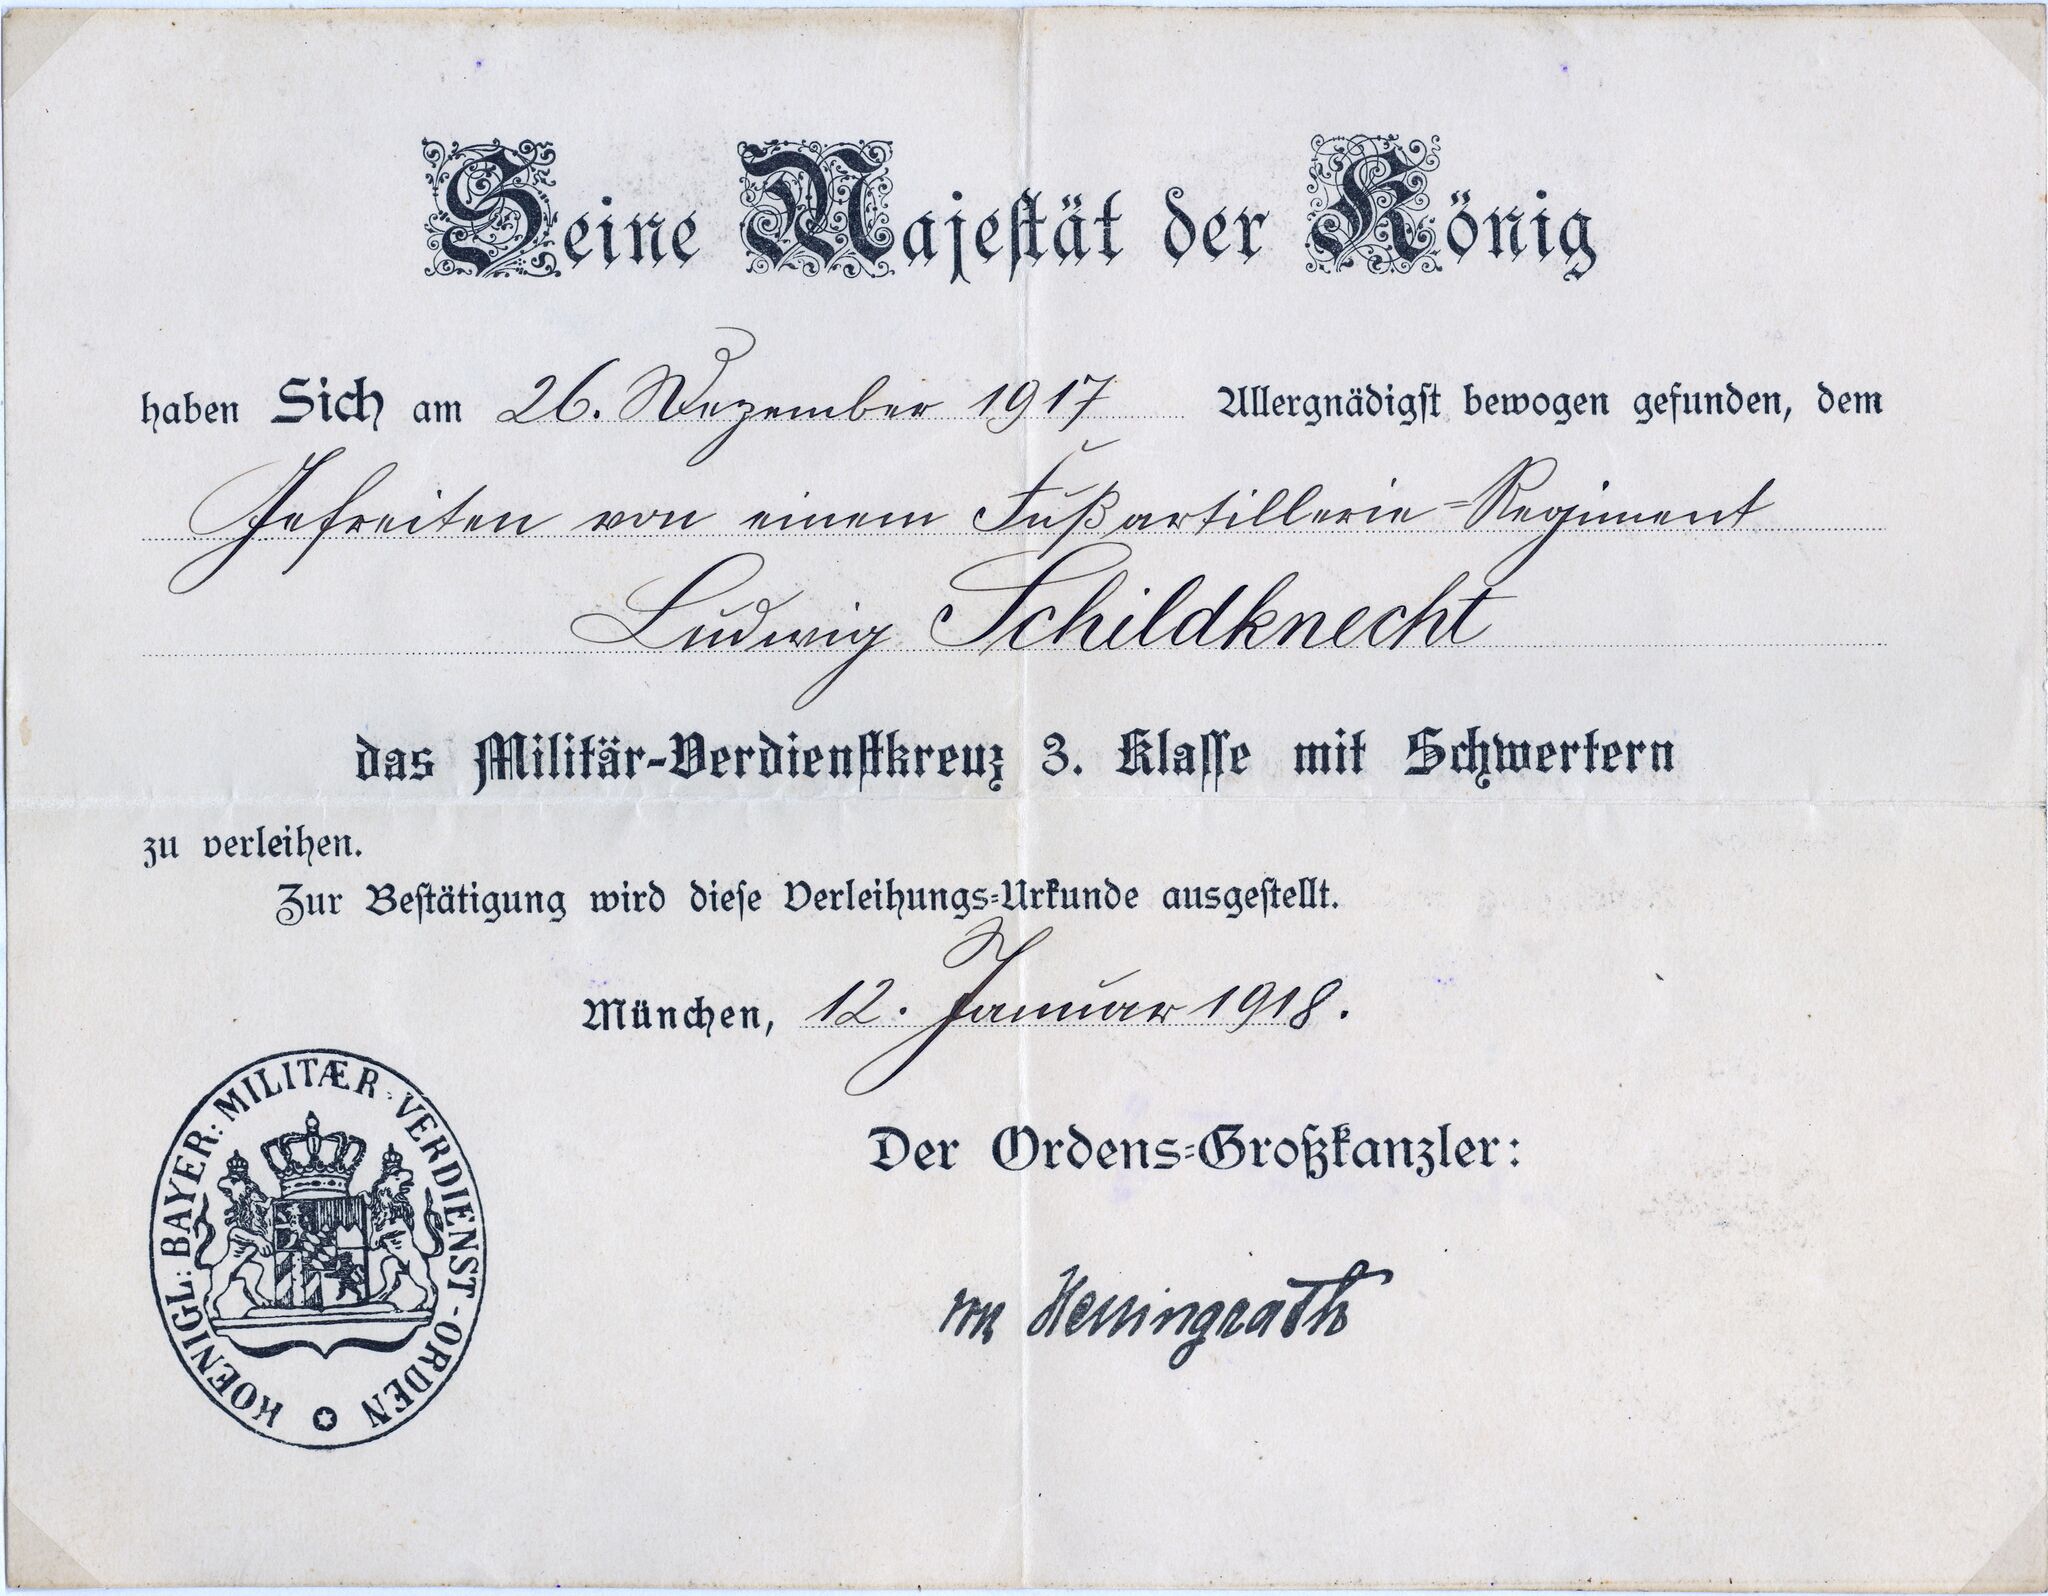 Seine Majestät der König
haben Sich am 26. Dezember 1917 Allergnädigst bewogen gefunden, dem
Gefreiten von einem Fußartillerie=Regiment
Ludwig Schildknecht
das Militär-Verdienstkreuz 3. Klasse mit Schwertern
zu verleihen.
Zur Bestätigung wird diese Verleihungs=Urkunde ausgestellt.
München, 12. Januar 1918.
Der Ordens=Großkanzler:
KOENIGL: BAYER: MILITÆR-VERDIENST-ORDEN